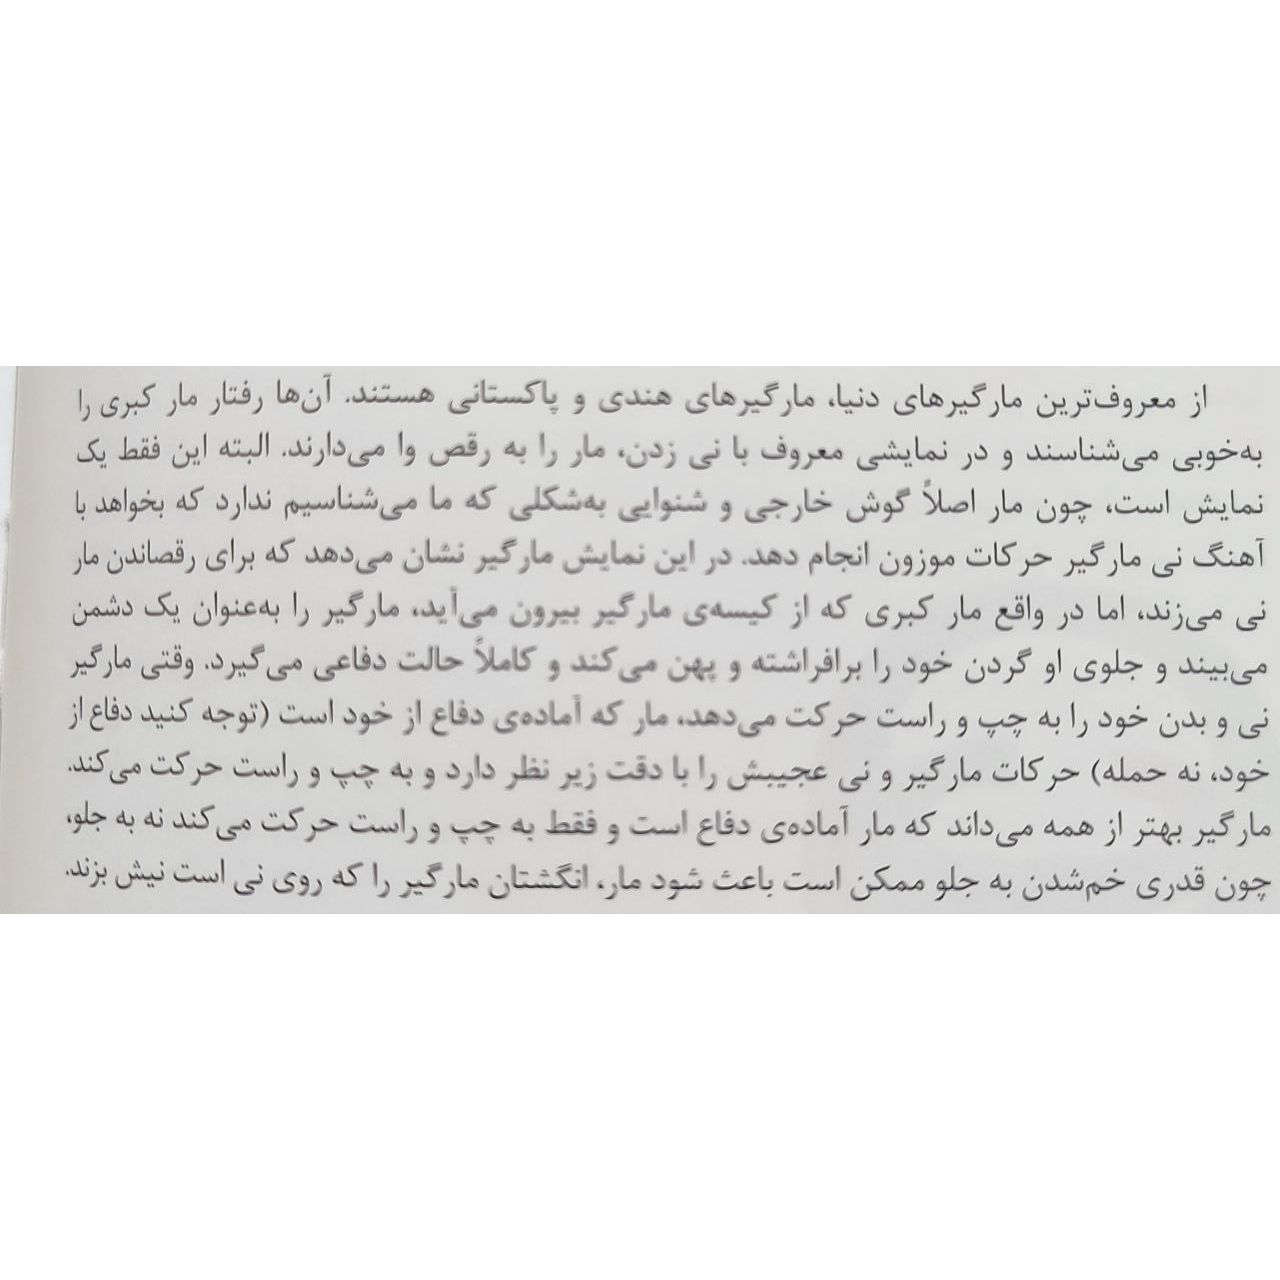 از معروف‌ترین مارگیرهای دنیا، مارگیرهای هندی و پاکستانی هستند. آن‌ها رفتار مار کبری را
به‌خوبی می‌شناسند و در نمایشی معروف با نی زدن، مار را به رقص وا می‌دارند. البته این فقط یک
نمایش است، چون مار اصلاً گوش خارجی و شنوایی به‌شکلی که ما می‌شناسیم ندارد که بخواهد با
آهنگ نی مارگیر حرکات موزون انجام دهد. در این نمایش مارگیر نشان می‌دهد که برای رقصاندن مار
نی می‌زند، اما در واقع مار کبری که از کیسه‌ی مارگیر بیرون می‌آید، مارگیر را به‌عنوان یک دشمن
می‌بیند و جلوی او گردن خود را برافراشته و پهن می‌کند و کاملاً حالت دفاعی می‌گیرد. وقتی مارگیر
نی و بدن خود را به چپ و راست حرکت می‌دهد، مار که آماده‌ی دفاع از خود است (توجه کنید دفاع از
خود، نه حمله) حرکات مارگیر و نی عجیبش را با دقت زیر نظر دارد و به چپ و راست حرکت می‌کند.
مارگیر بهتر از همه می‌داند که مار آماده‌ی دفاع است و فقط به چپ و راست حرکت می‌کند نه به جلو،
چون قدری خم‌شدن به جلو ممکن است باعث شود مار، انگشتان مارگیر را که روی نی است نیش بزند.